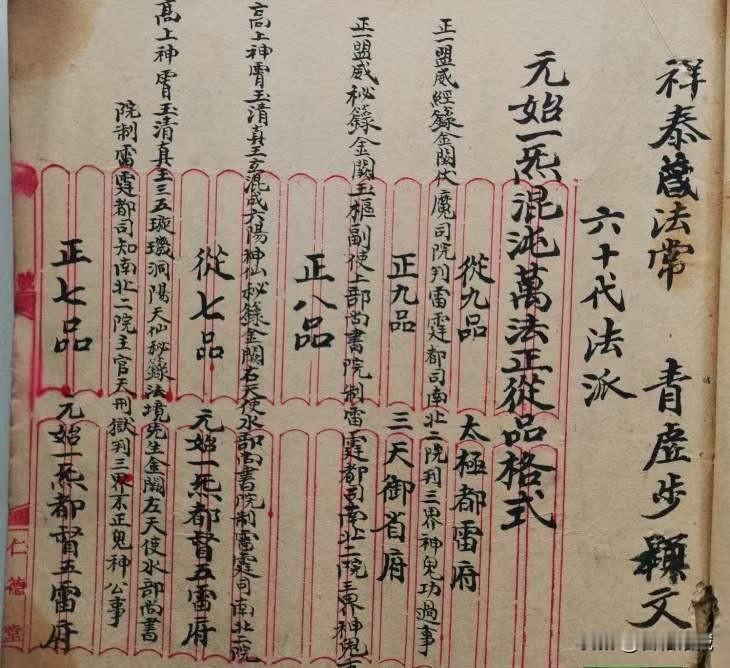 祥泰法常　青虛步文
六十代法派
元始一炁混沌萬法正從品格式
從九品　太極都雷府
正一盟威經籙金闕伏魔司院判雷霆都司南北二院判三界神鬼功過事
正九品　三天御省府
正一盟威秘籙金闕玉樞副使上部尚書院制雷霆都司南北二院三界神鬼
正八品
高上神霄玉清真王玄混成六陽神仙秘籙金闕右天使水部尚書院制雷霆司南北二院
從七品　元始一炁都督五雷府
高上神霄玉清真王三五璇璣洞陽天仙秘籙法境先生金闕左天使水部尚書
院制雷霆都司知南北二院主官天刑獄判三界不正鬼神公事
正七品　元始一炁都督五雷府
仁德堂